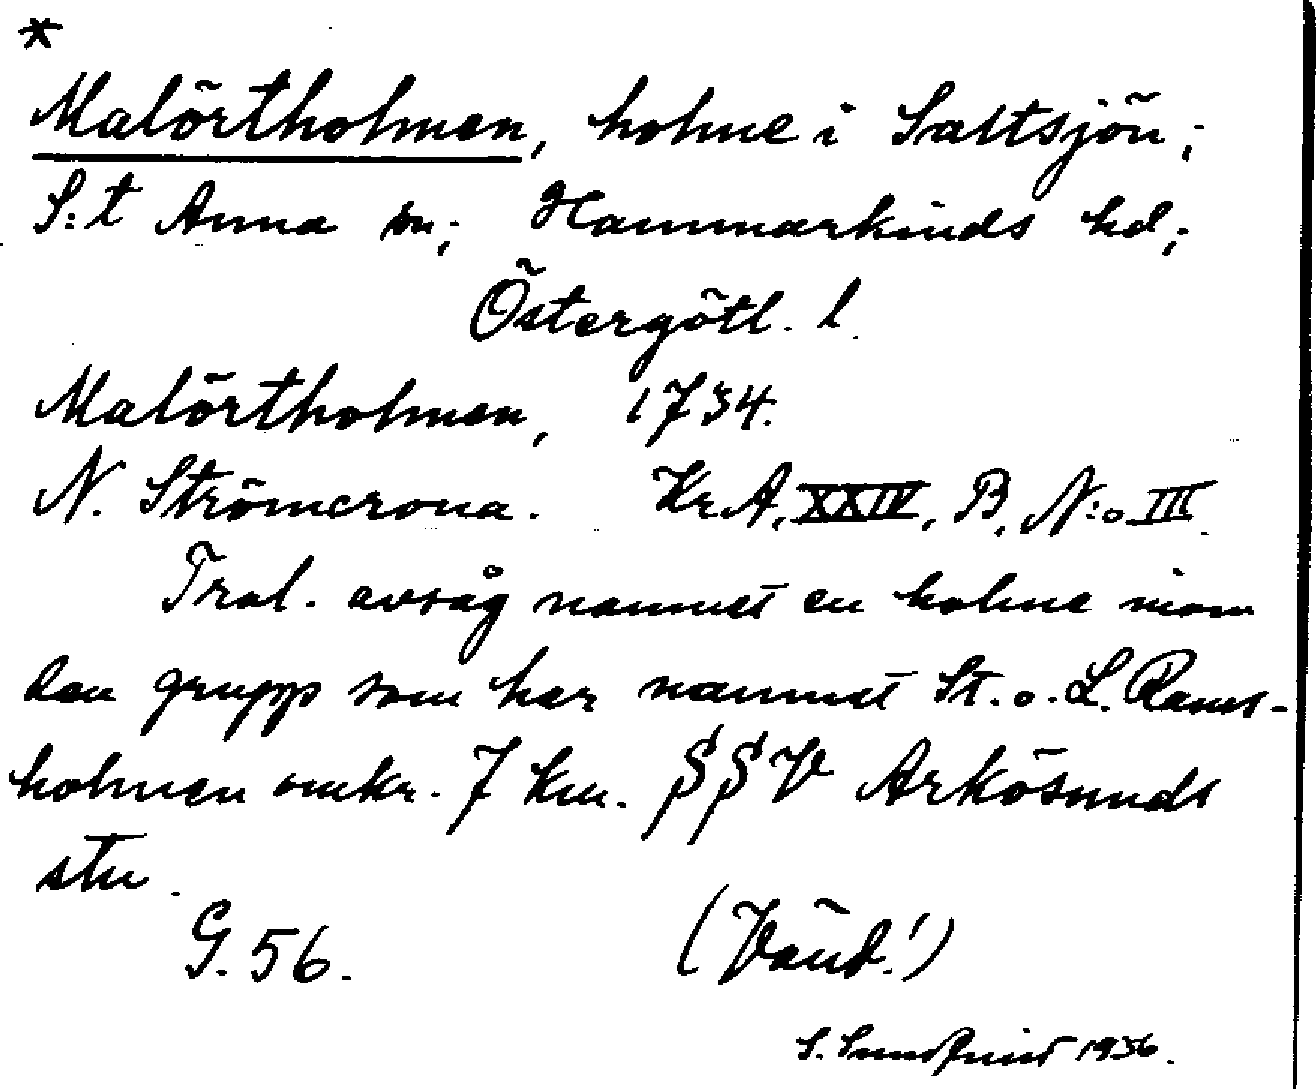 *
Malörtholmen, holme i Saltsjön;
S:t Anna sn; Hammarkinds hd;
Östergötl. l.
Malörtholmen, 1734.
N. Strömcrona. Kr.A. XXIV, B, N:o III.
Trol. avsåg namnet en holme inom
den grupp som har namnet St. o. L. Rams-
holmen omkr. 7 km. SSV Arkösunds
stn.
G. 56.
(Vänd!)
S. Sundquist 1936.